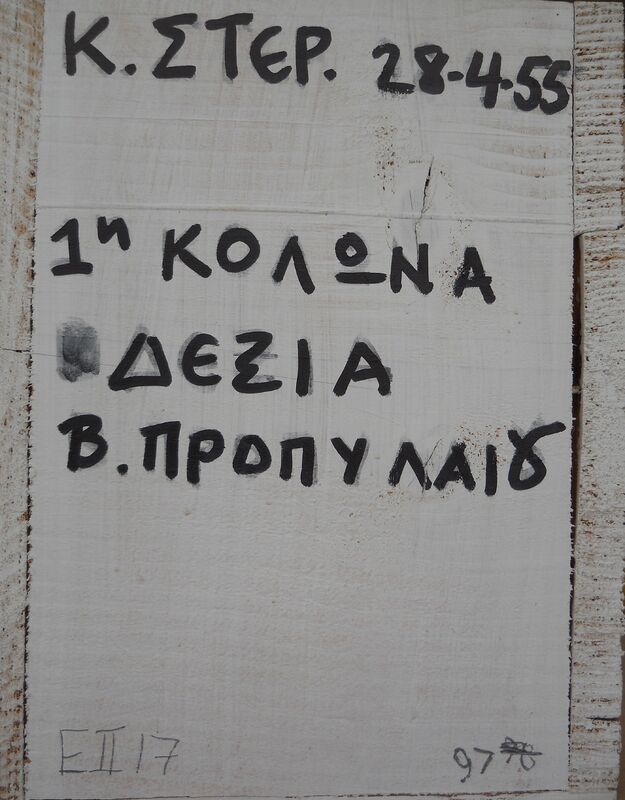 Κ. ΣΤΕΡ. 28-4-55
1η ΚΟΛΩΝΑ
ΔΕΞΙΑ
Β. ΠΡΟΠΥΛΑΙȣ
ΕΙΙ17 97